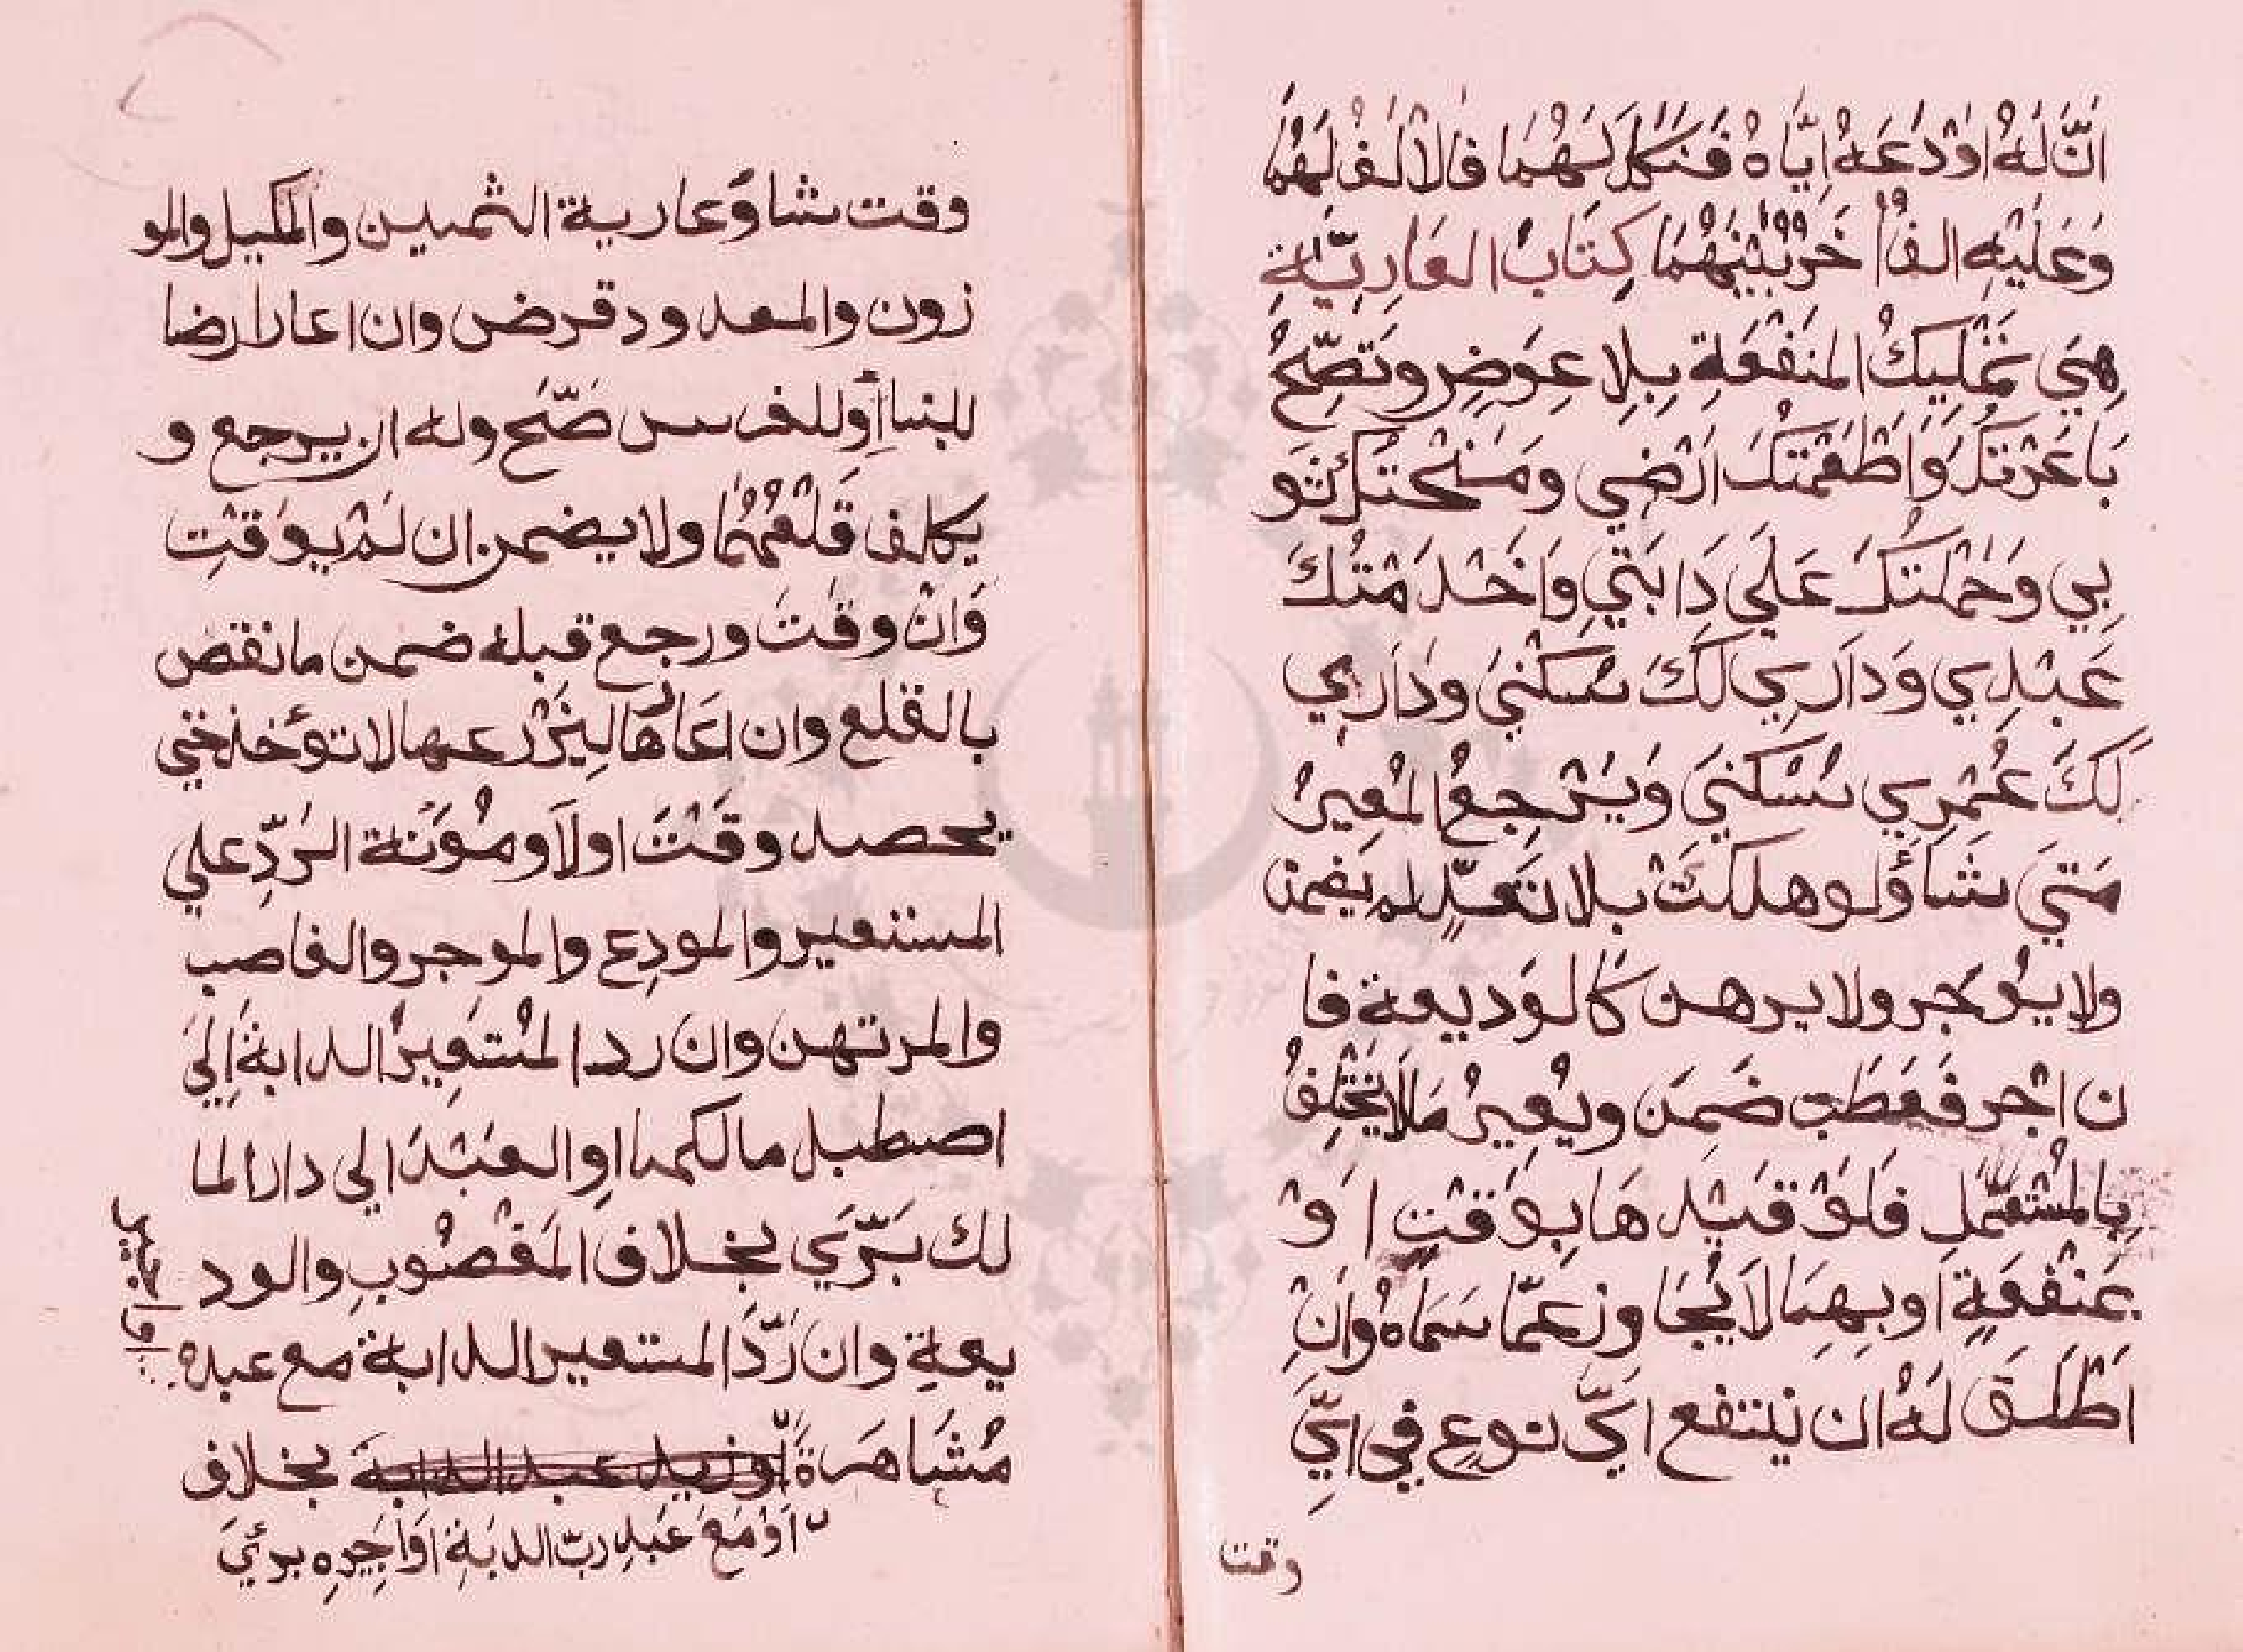 اَنَّ لَهُ اَوْدَعَهُ اِيَّاهُ فَنَكَلَ لَهُمَا فَالْاَلْفُ لَهُمَا
وَعَلَيْهِ الفٌ اٰخَرُ بَيْنَهُمَا كِتَابُ العَارِيَّةِ
هِيَ تَمْلِيكُ المَنْفَعَةِ بِلَا عِوَضٍ وتَصِّحُ
بَاعَرْتُكَ وَاَطْعَمْتُكَ اَرْضِي ومَنَحْتُكَ ثَو
بِي وَحَمَلْتُكَ عَلَي دَابَتِي وَاَخْدَمْتُكَ
عَبْدِي وَدَارِي لَكَ سُكْنَي ودَارِي
لَكَ عُمْرِي سُكْنَي وَيَرْجِعُ المُعِيرُ
مَتَي شَأَوَلو هلكَتْ بلا تَعَدٍّ لم يَضمن
ولا يُوَجر ولا يرهن كَالوَديعة فا
ن اجر فَعَطَب ضَمِنَ ويُعِيرُ مَا لَا يَخْتَلِفُ
بِالمُسْتَعْمِلِ فَلَوْ قَيْدهَا بِوَقْتٍ اَوْ
بمَنْفَعَةٍ اَو بِهِمَا لَا يُجَاوزعَمَّا سَمَاهُ وَاِنْ
اَطْلَقَ لَهُ ان ينتفع ايَّ نوعٍ فِي ايِّ
وقت
وقت شاوَعارية الثمنين والمكيل والمو
زون والمعدود قرض وان اعار ارضا
للبناأَوللغرس صَّحَ وله ان يرجع و
يكلف قَلْعَهُمَا ولا يضمن ان لَمْ يوَقتِ
وَانْ وقتَ ورجع قبله ضمن مانقص
بالقلع وان اعَارهَا لِيَزْرعها لا تؤخذ حَتي
يحصد وقَتَ اولَاَ ومُوَنة الرَدِّ علي
المستعير والمودِع والموجر والغاصب
والمرتهن وان رد المُسْتَعِيرُ الدابةَ اِلَيَ
اصطبل مالكها اوِ العَبْدَ الي دار الما
لك بَرِّيَ بخلاف المَغْصُوبِ والود
يعةِ وان رَدَّ المستعير الدابة مع عبده
مُشَاهَرَةً بخلاف
اَوْ مَعَ عَبدِ ربّ الدبَةِ اَوَاَجِيرِهِ برئيَ